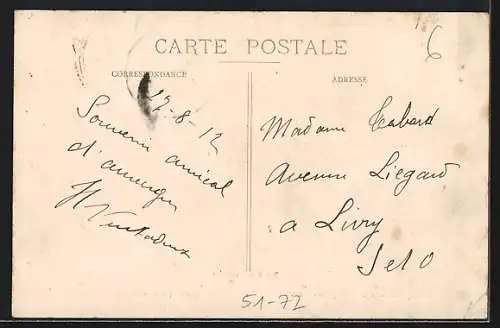 CARTE POSTALE
CORRESPONDANCE
ADRESSE
6
27-8-12
Souvenir amical
d'auvergne
H
Madame Tabard
Avenue Liégard
a Livry
S et O
51-72